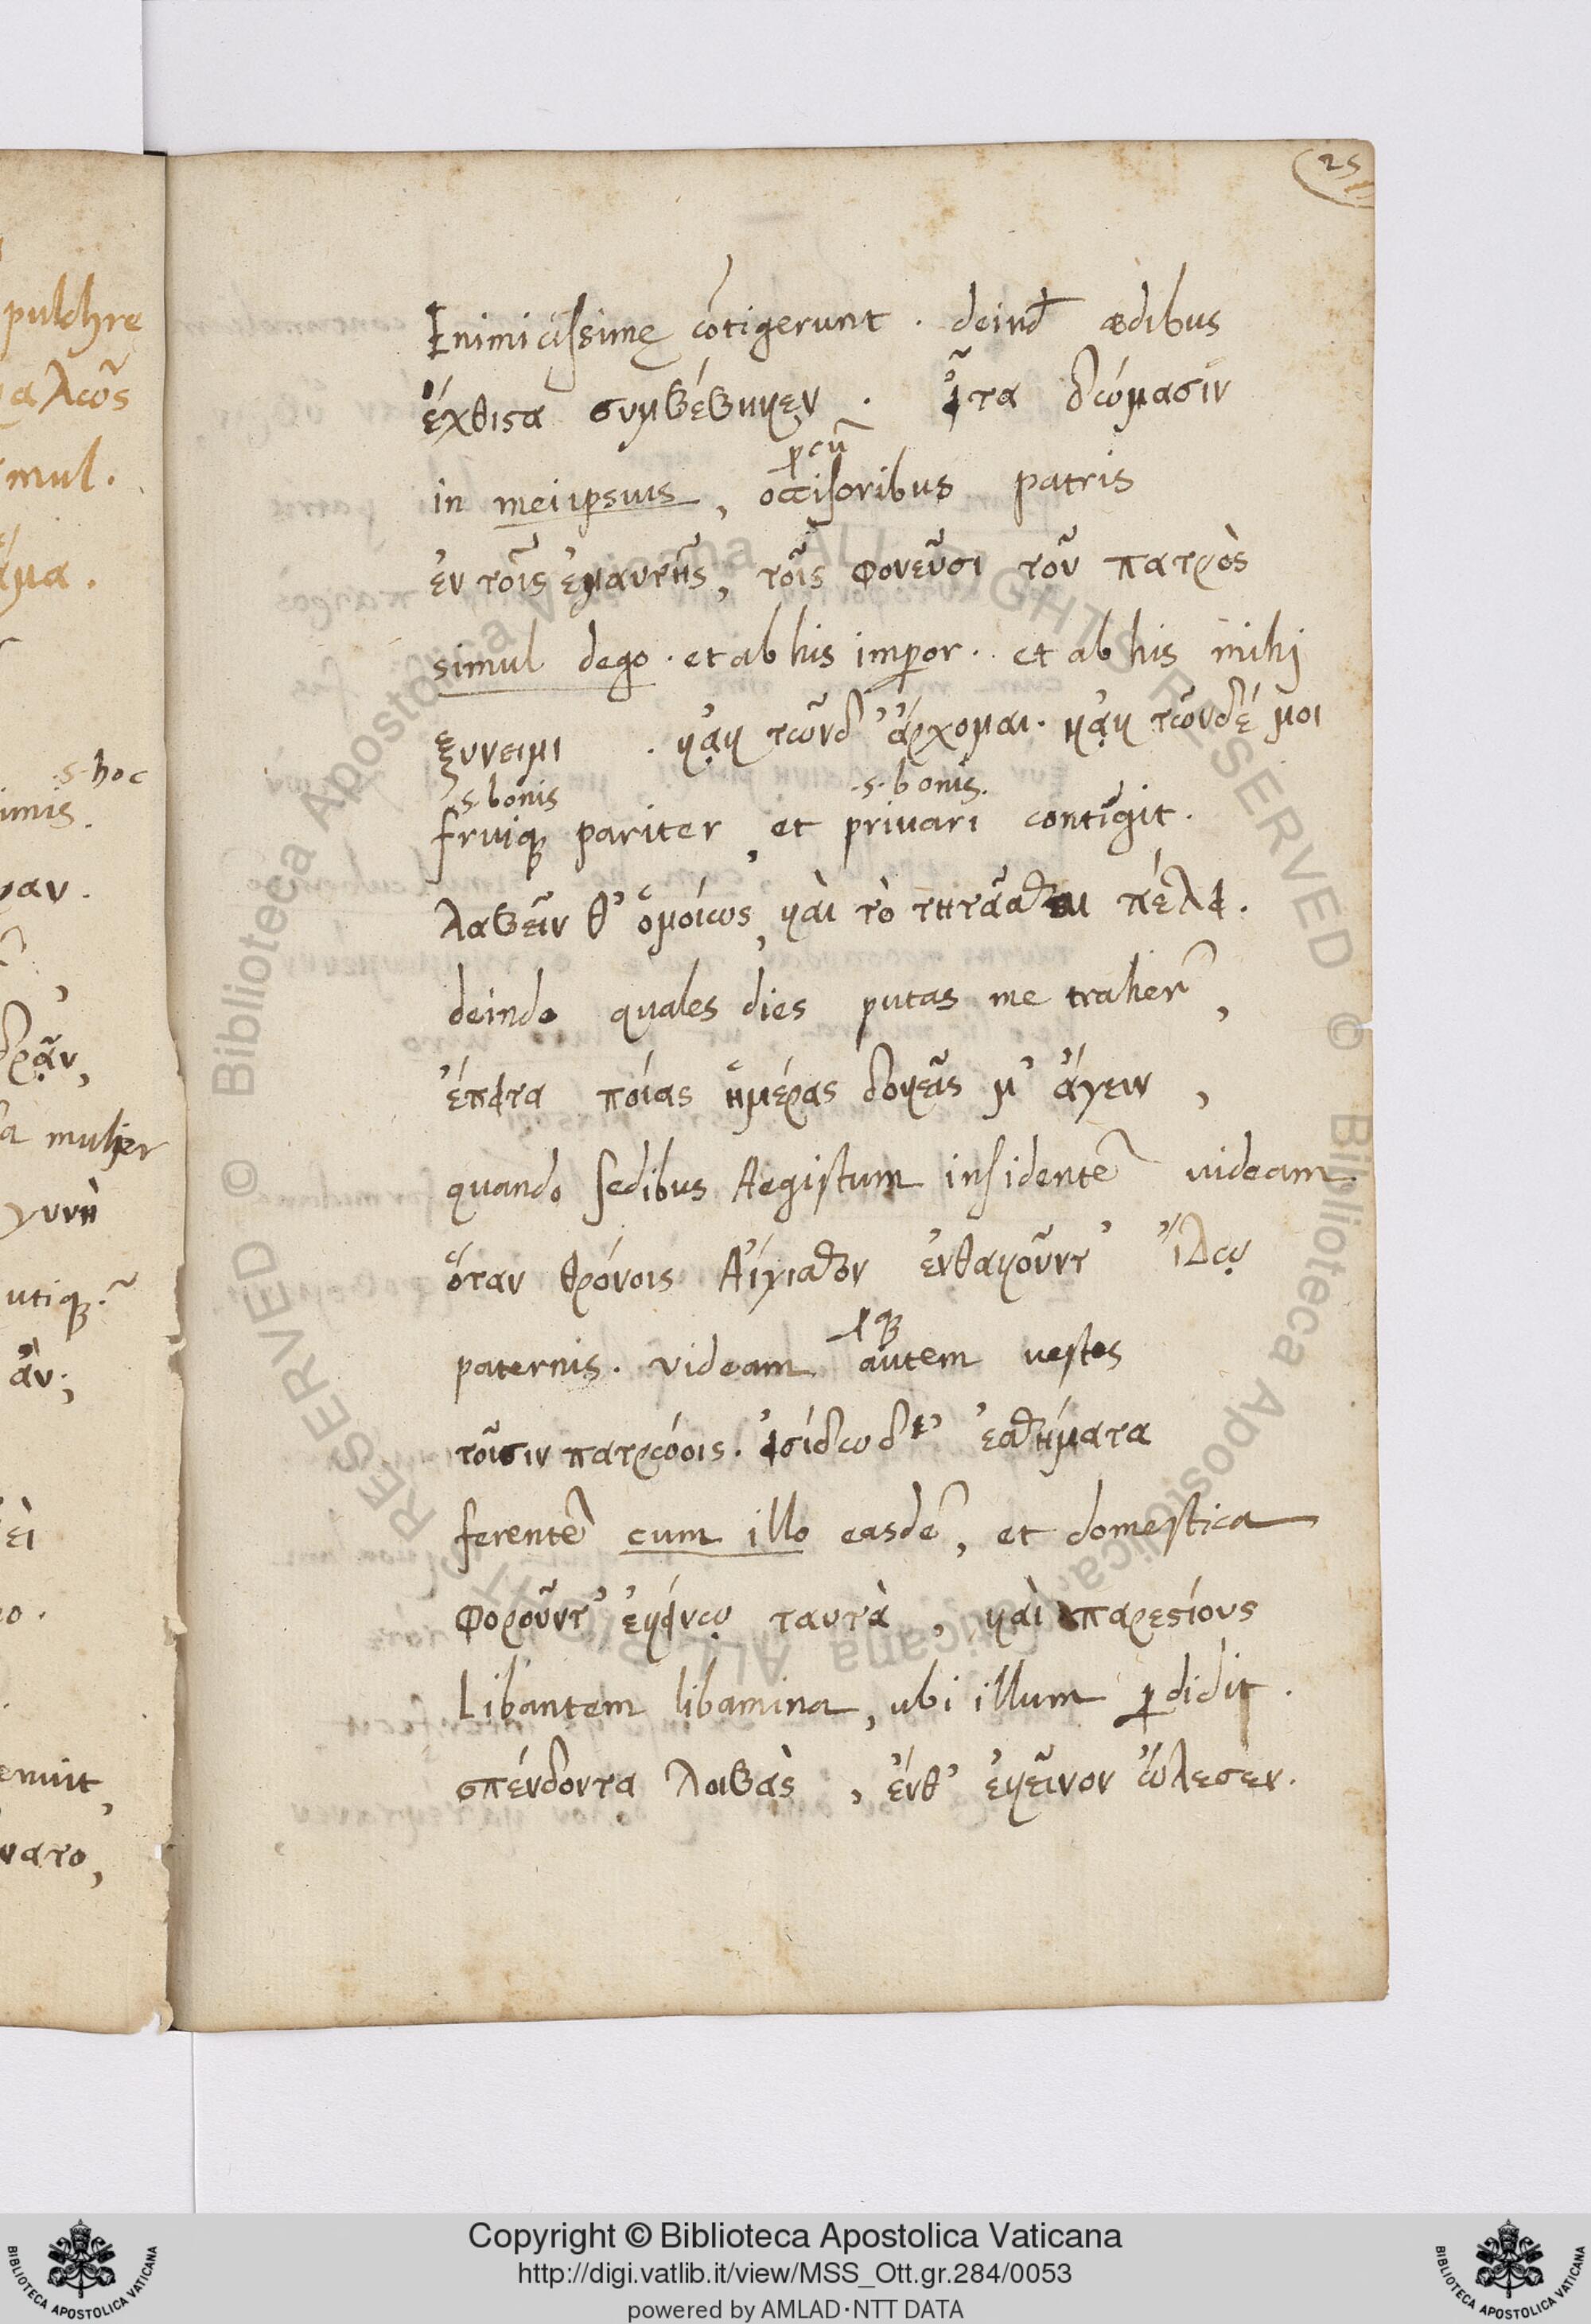 25
Inimicissimę cõtigerunt . deind̄ ædibus
ἔχθιστα συμβέβηκεν . εἶτα δώμασιν
ꝑ cũ
in meiipsius , occisoribus patris
ἐν τοῖς ἐμαυτῆς, τοῖς φονεῦσι τοῦ πατρὸς
simul dego . et ab his imꝑor . et ab his mihi
ξύνειμι . κᾀκ τῶνδ' ἄρχομαι . κᾀκ τῶνδέ μοι
.s. bonis .s. bonis.
fruiqꝫ pariter, et priuari contigit .
λαβεῖν θ' ὁμοίως, καὶ τὸ τητᾶσθαι πέλει .
deinde quales dies putas me traher̃ ,
ἔπειτα ποίας ἡμέρας δοκεῖς μ' ἄγειν ,
quando sedibus Aegistum insidentẽ uideam
ὅταν θρόνοις Αἴγισθον ἐνθακοῦντ' ἴδω
paternis . videam autem vestes
τοῖσιν πατρῴοις . εἰσίδω δ' ἐσθήματα
ferentẽ cum illo easdẽ , et domestica
φοροῦντ' ἐκείνῳ ταυτὰ , καὶ παρεστίους
Libantem libamina , ubi illum ꝑdidit .
σπένδοντα λοιβὰς , ἔνθ' ἐκεῖνον ὤλεσεν .
pulchre
καλῶς
imul .
ἅμα .
.s. hoc
mulier
γυνὴ
utiqꝫ
ἄν ;
Copyright © Biblioteca Apostolica Vaticana
http://digi.vatlib.it/view/MSS_Ott.gr.284/0053
powered by AMLAD·NTT DATA
BIBLIOTECA APOSTOLICA VATICANA
BIBLIOTECA APOSTOLICA VATICANA